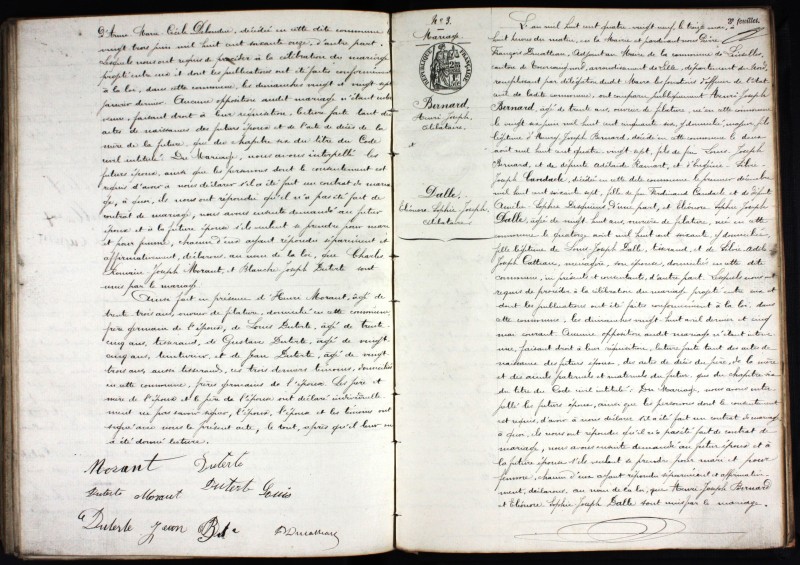 D'Anne Marie Cécile Deloudre, décédée en cette dite commune le
vingt trois juin mil huit cent soixante onze, d'autre part.
Lesquels nous ont requis de procéder à la célébration du mariage
projeté entre eux et dont les publications ont été faites conformément
à la loi, dans cette commune, les dimanches vingt et vingt sept
janvier dernier. Aucune opposition audit mariage n'étant inter-
venue, faisant droit à leur réquisition, lecture faite tant des
actes de naissance des futurs époux et de l'acte de décès de la
mère de la future, que du chapitre six du titre du Code
civil intitulé: Du Mariage, nous avons interpellé les
futurs époux, ainsi que les personnes dont le consentement est
requis d'avoir à nous déclarer s'il a été fait un contrat de maria-
ge, à quoi, ils nous ont répondu qu'il n'a pas été fait de
contrat de mariage, nous avons ensuite demandé au futur
époux et à la future épouse s'ils veulent se prendre pour mari
et pour femme, chacun d'eux ayant répondu séparément et
affirmativement, déclarons, au nom de la loi, que Charles
Romain Joseph Morant, et Blanche Joseph Duterte sont
unis par le mariage.
Ainsi fait en présence d'Henri Morant, âgé de
trente trois ans, ouvrier de filature, domicilié en cette commune,
frère germain de l'époux, de Louis Duterte, âgé de trente
cinq ans, tisserand, de Gustave Duterte, âgé de vingt
cinq ans, et de Jean Duterte, âgé de vingt
trois ans, aussi tisserand, ces trois derniers témoins, domiciliés
en cette commune, frères germains de l'épouse. Les père et
mère de l'époux et le père de l'épouse ont déclaré individuelle-
ment ne pas savoir signer, l'époux, l'épouse et les témoins ont
signé avec nous le présent acte, le tout, après qu'il leur en
a été donné lecture.
Morant Duterte
Duterte Morant Duterte Louis
Duterte Jean
Ducatteau
N° 3.
Mariage
RÉPUBLIQUE FRANÇAISE
Bernard,
Henri Joseph,
célibataire,
x
Dalle,
Eléonore, Sophie, Joseph,
célibataire.
3e feuillet.
L'an mil huit cent quatre vingt neuf, le onze mai, à
huit heures du matin, en la Mairie et pardevant nous
François Ducatteau, Adjoint au Maire de la commune de Linselles,
canton de Tourcoing nord, arrondissement de Lille, département du Nord,
remplissant par délégation dudit Maire les fonctions d'officier de l'Etat
civil de ladite commune, ont comparu publiquement Henri Joseph
Bernard, âgé de trente ans, ouvrier de filature, né en cette commune
le vingt juin mil huit cent cinquante six, y domicilié, majeur, fils
légitime d'Henry Joseph Bernard, décédé en cette commune le deux
août mil huit cent quatre vingt sept, fils de feu Louis Joseph
Bernard, et de défunte Adélaïde Ramart, et d'
Joseph Candaele, décédée en cette dite commune le premier décembre
mil huit cent soixante sept, fille de feu Ferdinand Candaele et de défunte
Amélie Sophie Desprines d'une part, et Eléonore Sophie Joseph
Dalle, âgée de vingt huit ans, ouvrière de filature, née en cette
commune le quatorze août mil huit cent soixante, y domiciliée,
fille légitime de Louis Joseph Dalle, tisserand, et de
Joseph Catteau, ménagère, son épouse, domiciliés en cette dite
commune, ici présents et consentants, d'autre part. Lesquels nous ont
requis de procéder à la célébration du mariage projeté entre eux et
dont les publications ont été faites conformément à la loi, dans
cette commune, les dimanches vingt huit avril dernier et cinq
mai courant. Aucune opposition audit mariage n'étant interve-
nue, faisant droit à leur réquisition, lecture faite tant des actes de
naissance des futurs époux, des actes de décès du père, de la mère
et des aïeuls paternels et maternels du futur, que du chapitre six
du titre du Code civil intitulé: Du Mariage, nous avons inter-
pellé les futurs époux, ainsi que les personnes dont le consentement
est requis, d'avoir à nous déclarer s'il a été fait un contrat de mariage,
à quoi, ils nous ont répondu qu'il n'a pas été fait de contrat de
mariage, nous avons ensuite demandé au futur époux et à
la future épouse s'ils veulent se prendre pour mari et pour
femme, chacun d'eux ayant répondu séparément et affirmative-
ment, déclarons, au nom de la loi, que Henri Joseph Bernard
et Eléonore Sophie Joseph Dalle sont unis par le mariage.